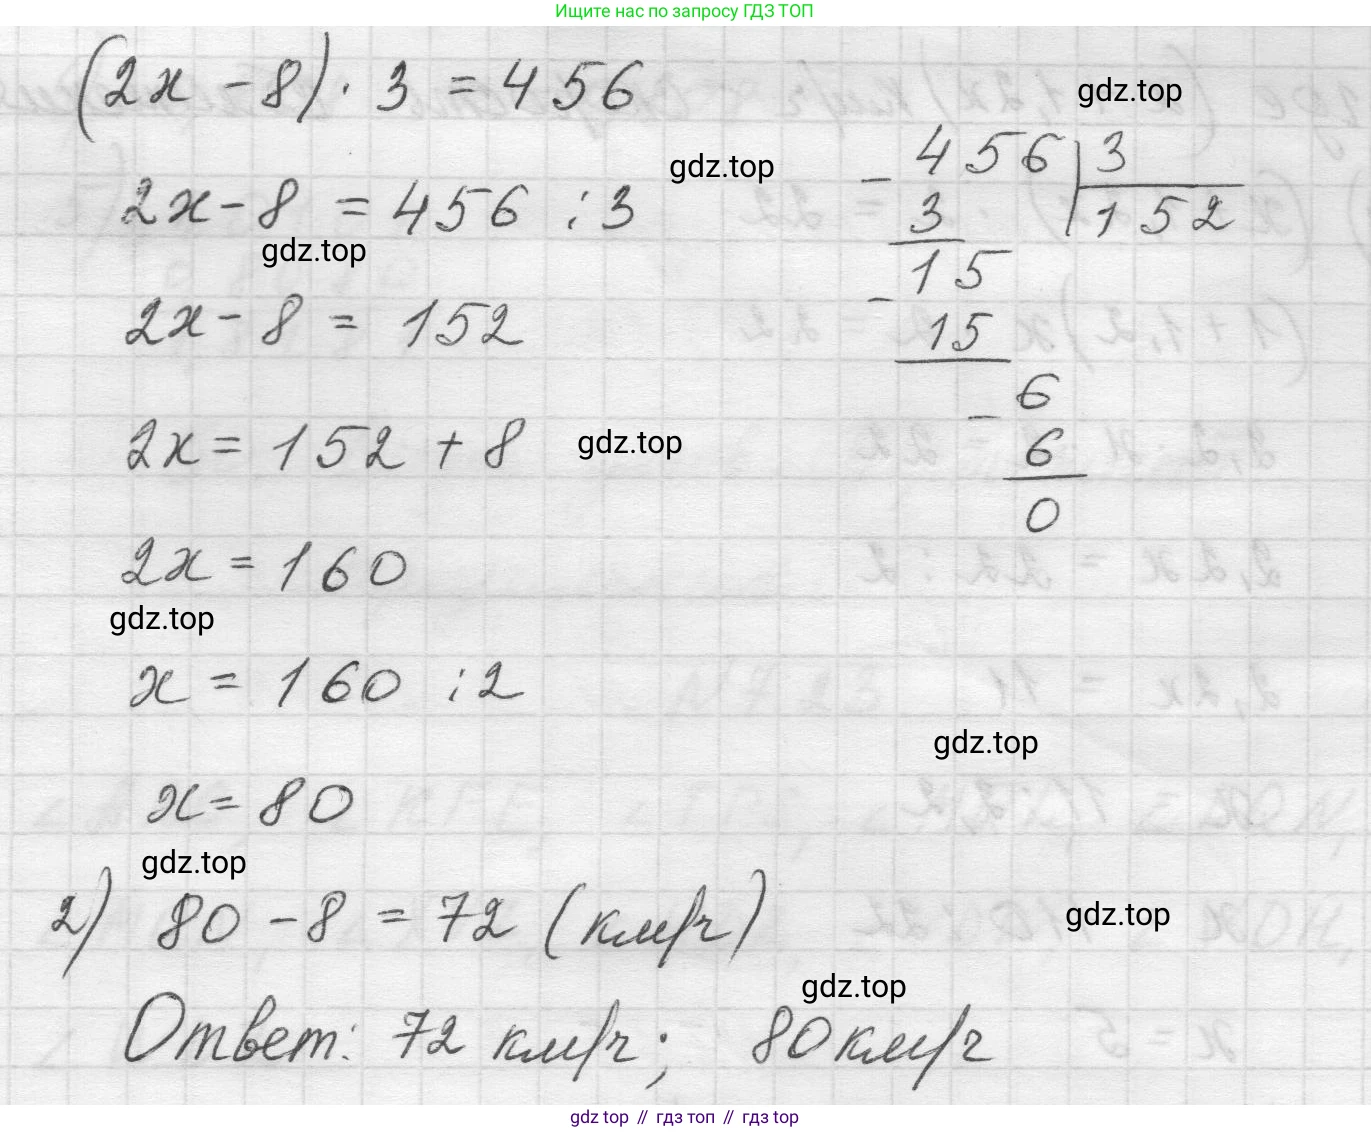 Ищите нас по запросу ГДЗ ТОП
(2x - 8) · 3 = 456
gdz.top
2x - 8 = 456 : 3
gdz.top
gdz.top
2x - 8 = 152
2x = 152 + 8
gdz.top
2x = 160
gdz.top
x = 160 : 2
gdz.top
x = 80
gdz.top
2) 80 - 8 = 72 (км/ч)
gdz.top
gdz.top
Ответ: 72 км/ч; 80 км/ч
- 456 | 3
3 | 152
- 15
15
- 6
6
0
gdz top // гдз топ // гдз top